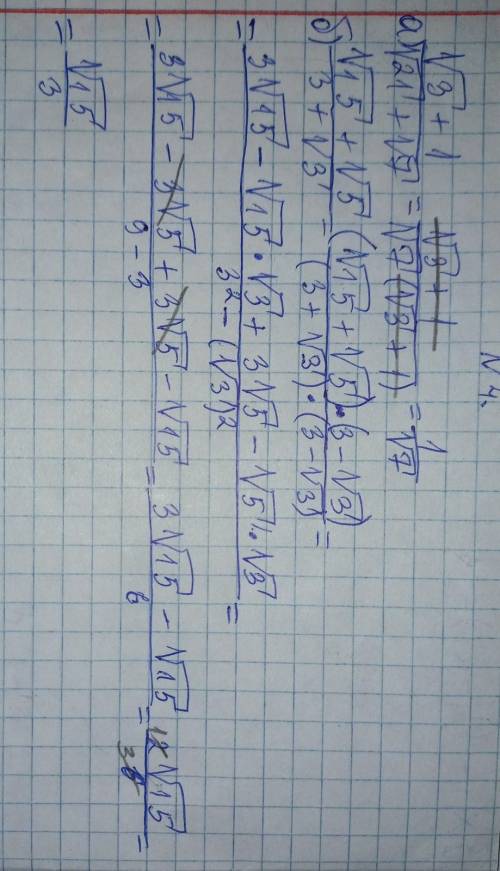 N 4.
а) (√3 + 1)/(√21 + √7) = (√3 + 1)/(√7(√3 + 1)) = 1/√7
б) (√15 + √5)/(3 + √3) = ((√15 + √5)·(3 - √3))/((3 + √3)·(3 - √3)) =
= (3√15 - √15 · √3 + 3√5 - √5 · √3)/(3² - (√3)²) =
= (3√15 - 3√5 + 3√5 - √15)/(9 - 3) = (3√15 - √15)/6 = (2√15)/6 =
= √15/3